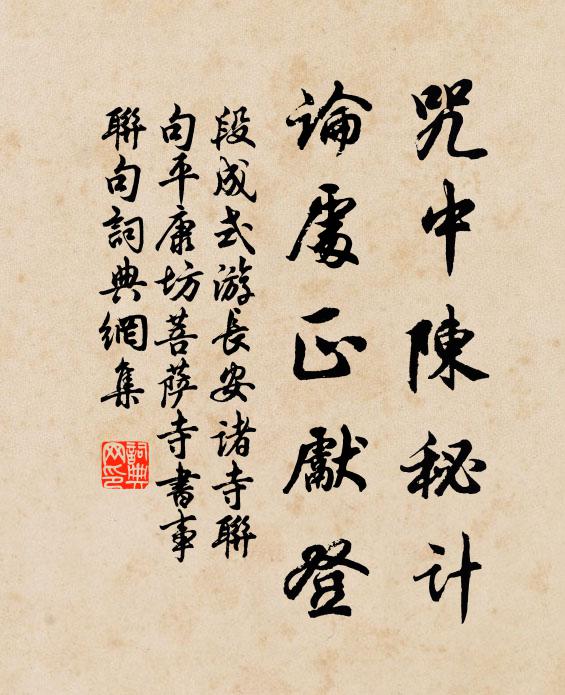 咒中陳秘計
論處正獻登
段成式游長安諸寺聯
句平康坊菩萨寺書事
聯句詞典網集
詞典
网印